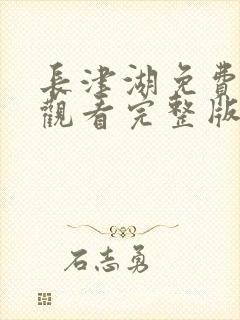 長津湖免費
觀看完整版
石志勇